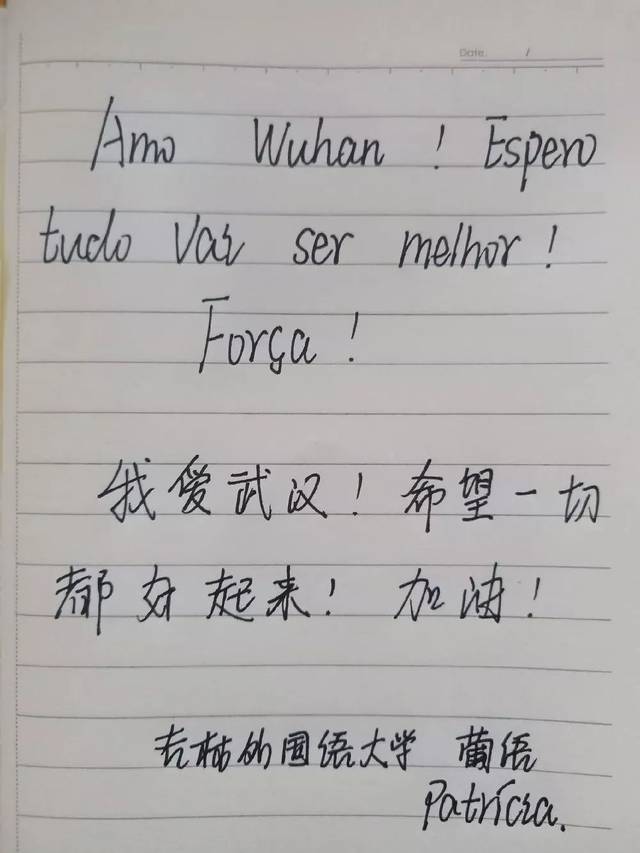 Date. /
Amo Wuhan ! Espero
tudo vai ser melhor !
Força !
我爱武汉！希望一切
都好起来！加油！
吉林外国语大学 葡语
Patrícia.